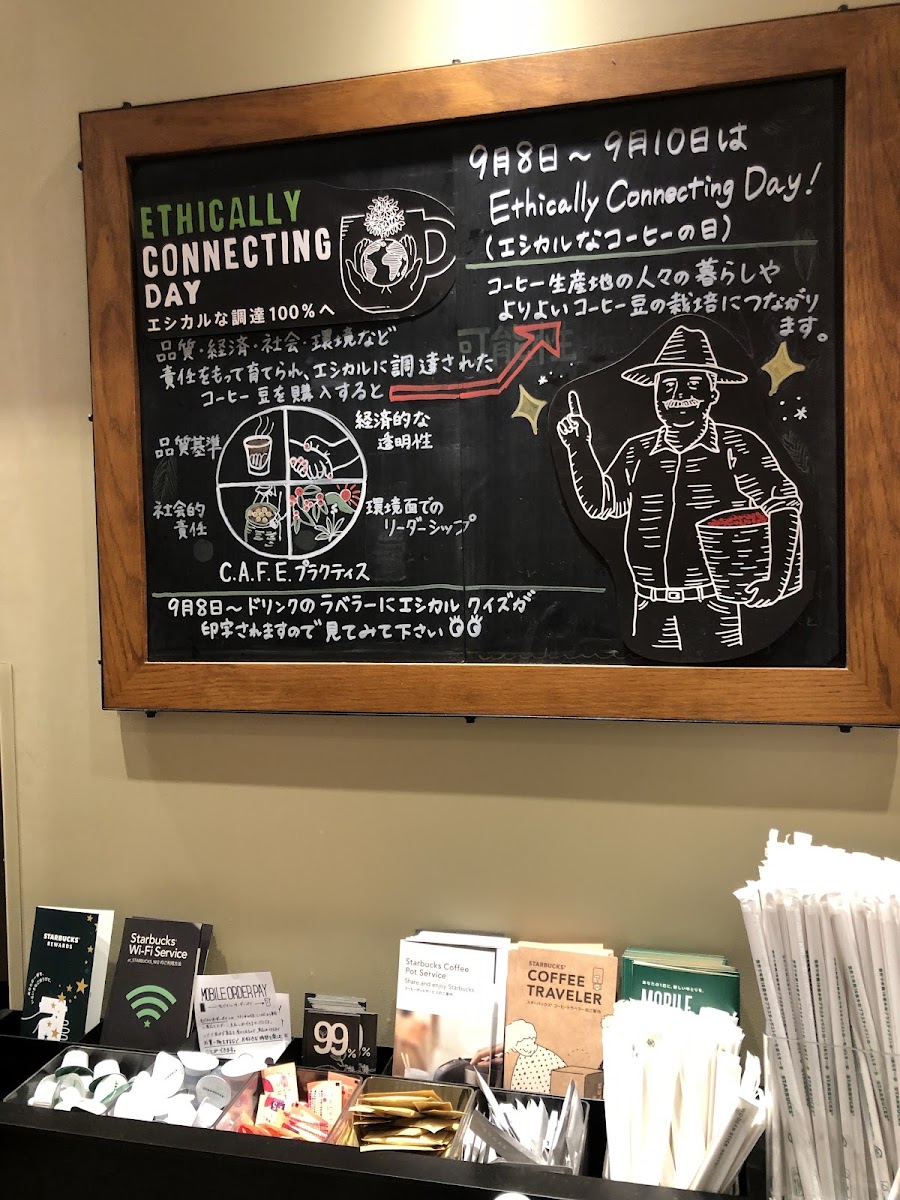 ETHICALLY
CONNECTING
DAY
エシカルな調達100%へ
9月8日〜9月10日は
Ethically Connecting Day!
(エシカルなコーヒーの日)
品質・経済・社会・環境など
責任をもって育てられ、エシカルに調達された
コーヒー豆を購入すると
コーヒー生産地の人々の暮らしや
よりよいコーヒー豆の栽培につながり
ます。
可能性
品質基準
経済的な
透明性
社会的
責任
環境面での
リーダーシップ
C.A.F.E.プラクティス
9月8日〜ドリンクのラベラーにエシカルクイズが
印字されますので見てみて下さい
STARBUCKS
REWARDS
Starbucks
Wi-Fi Service
MOBILE ORDER PAY
99%
Starbucks Coffee
Pot Service
Share and enjoy Starbucks
STARBUCKS
COFFEE
TRAVELER
スターバックス コーヒートラベラーのご案内
MOBILE